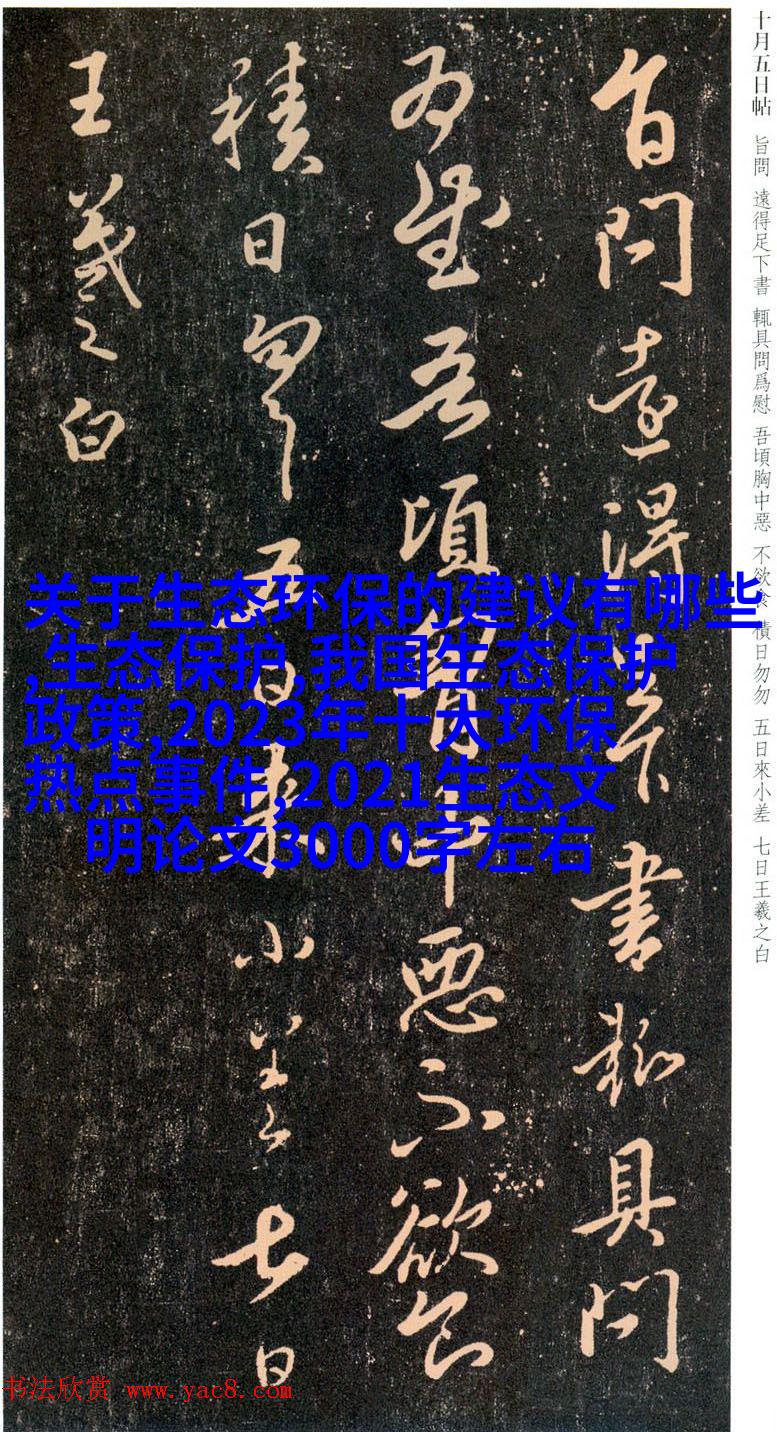 十月五日帖 旨問 遠得足下書 輒具問爲慰 吾頃胸中惡 不欲食 積日勿勿 五日來小差 七日王羲之白
旨問遠得足下書輒具問
為慰吾頃胸中惡不欲食
積日勿勿五日來小差七日
王羲之白
关于生态环保的建议有哪些
,生态保护,我国生态保护
政策,2023年十大环保
热点事件,2021生态文
明论文3000字左右
书法欣赏 www.yac8.com